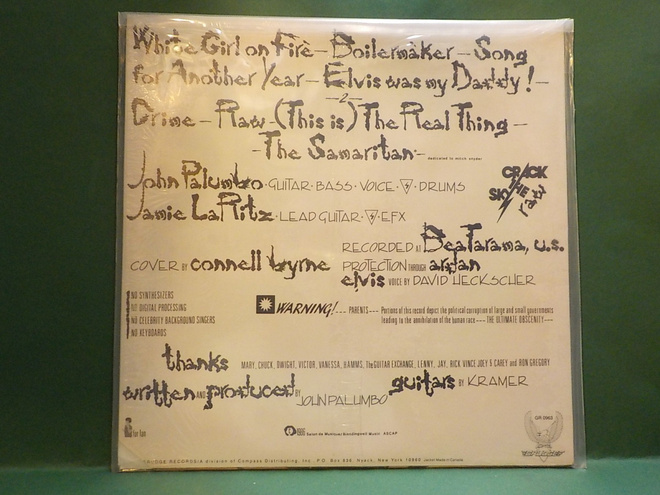 White Girl on Fire – Boilermaker – Song
for Another Year – Elvis was my Daddy! –
–2–
Crime – Raw – (This is) The Real Thing –
– The Samaritan –
dedicated to mitch snyder
John Palumbo · GUITAR · BASS · VOICE · DRUMS
Jamie LaRitz · LEAD GUITAR · EFX
CRACK
THE
SKY
raw
RECORDED AT BeaTarama, u.s.
COVER BY connell byrne
PROTECTION THROUGH
elvis VOICE BY DAVID HECKSCHER
NO SYNTHESIZERS
NO DIGITAL PROCESSING
NO CELEBRITY BACKGROUND SINGERS
NO KEYBOARDS
WARNING! ... PARENTS — Portions of this record depict the political corruption of large and small governments
leading to the annihilation of the human race — THE ULTIMATE OBSCENITY —
thanks MARY, CHUCK, DWIGHT, VICTOR, VANESSA, HAMMS, The GUITAR EXCHANGE, LENNY, JAY, RICK VINCE JOEY & CAREY and RON GREGORY
written AND produced BY JOHN PALUMBO
guitars BY KRAMER
for fun
1986 ASCAP
GR 0963
RECORDS/A division of Compass Distributing, Inc. P.O. Box 866, Nyack, New York 10960